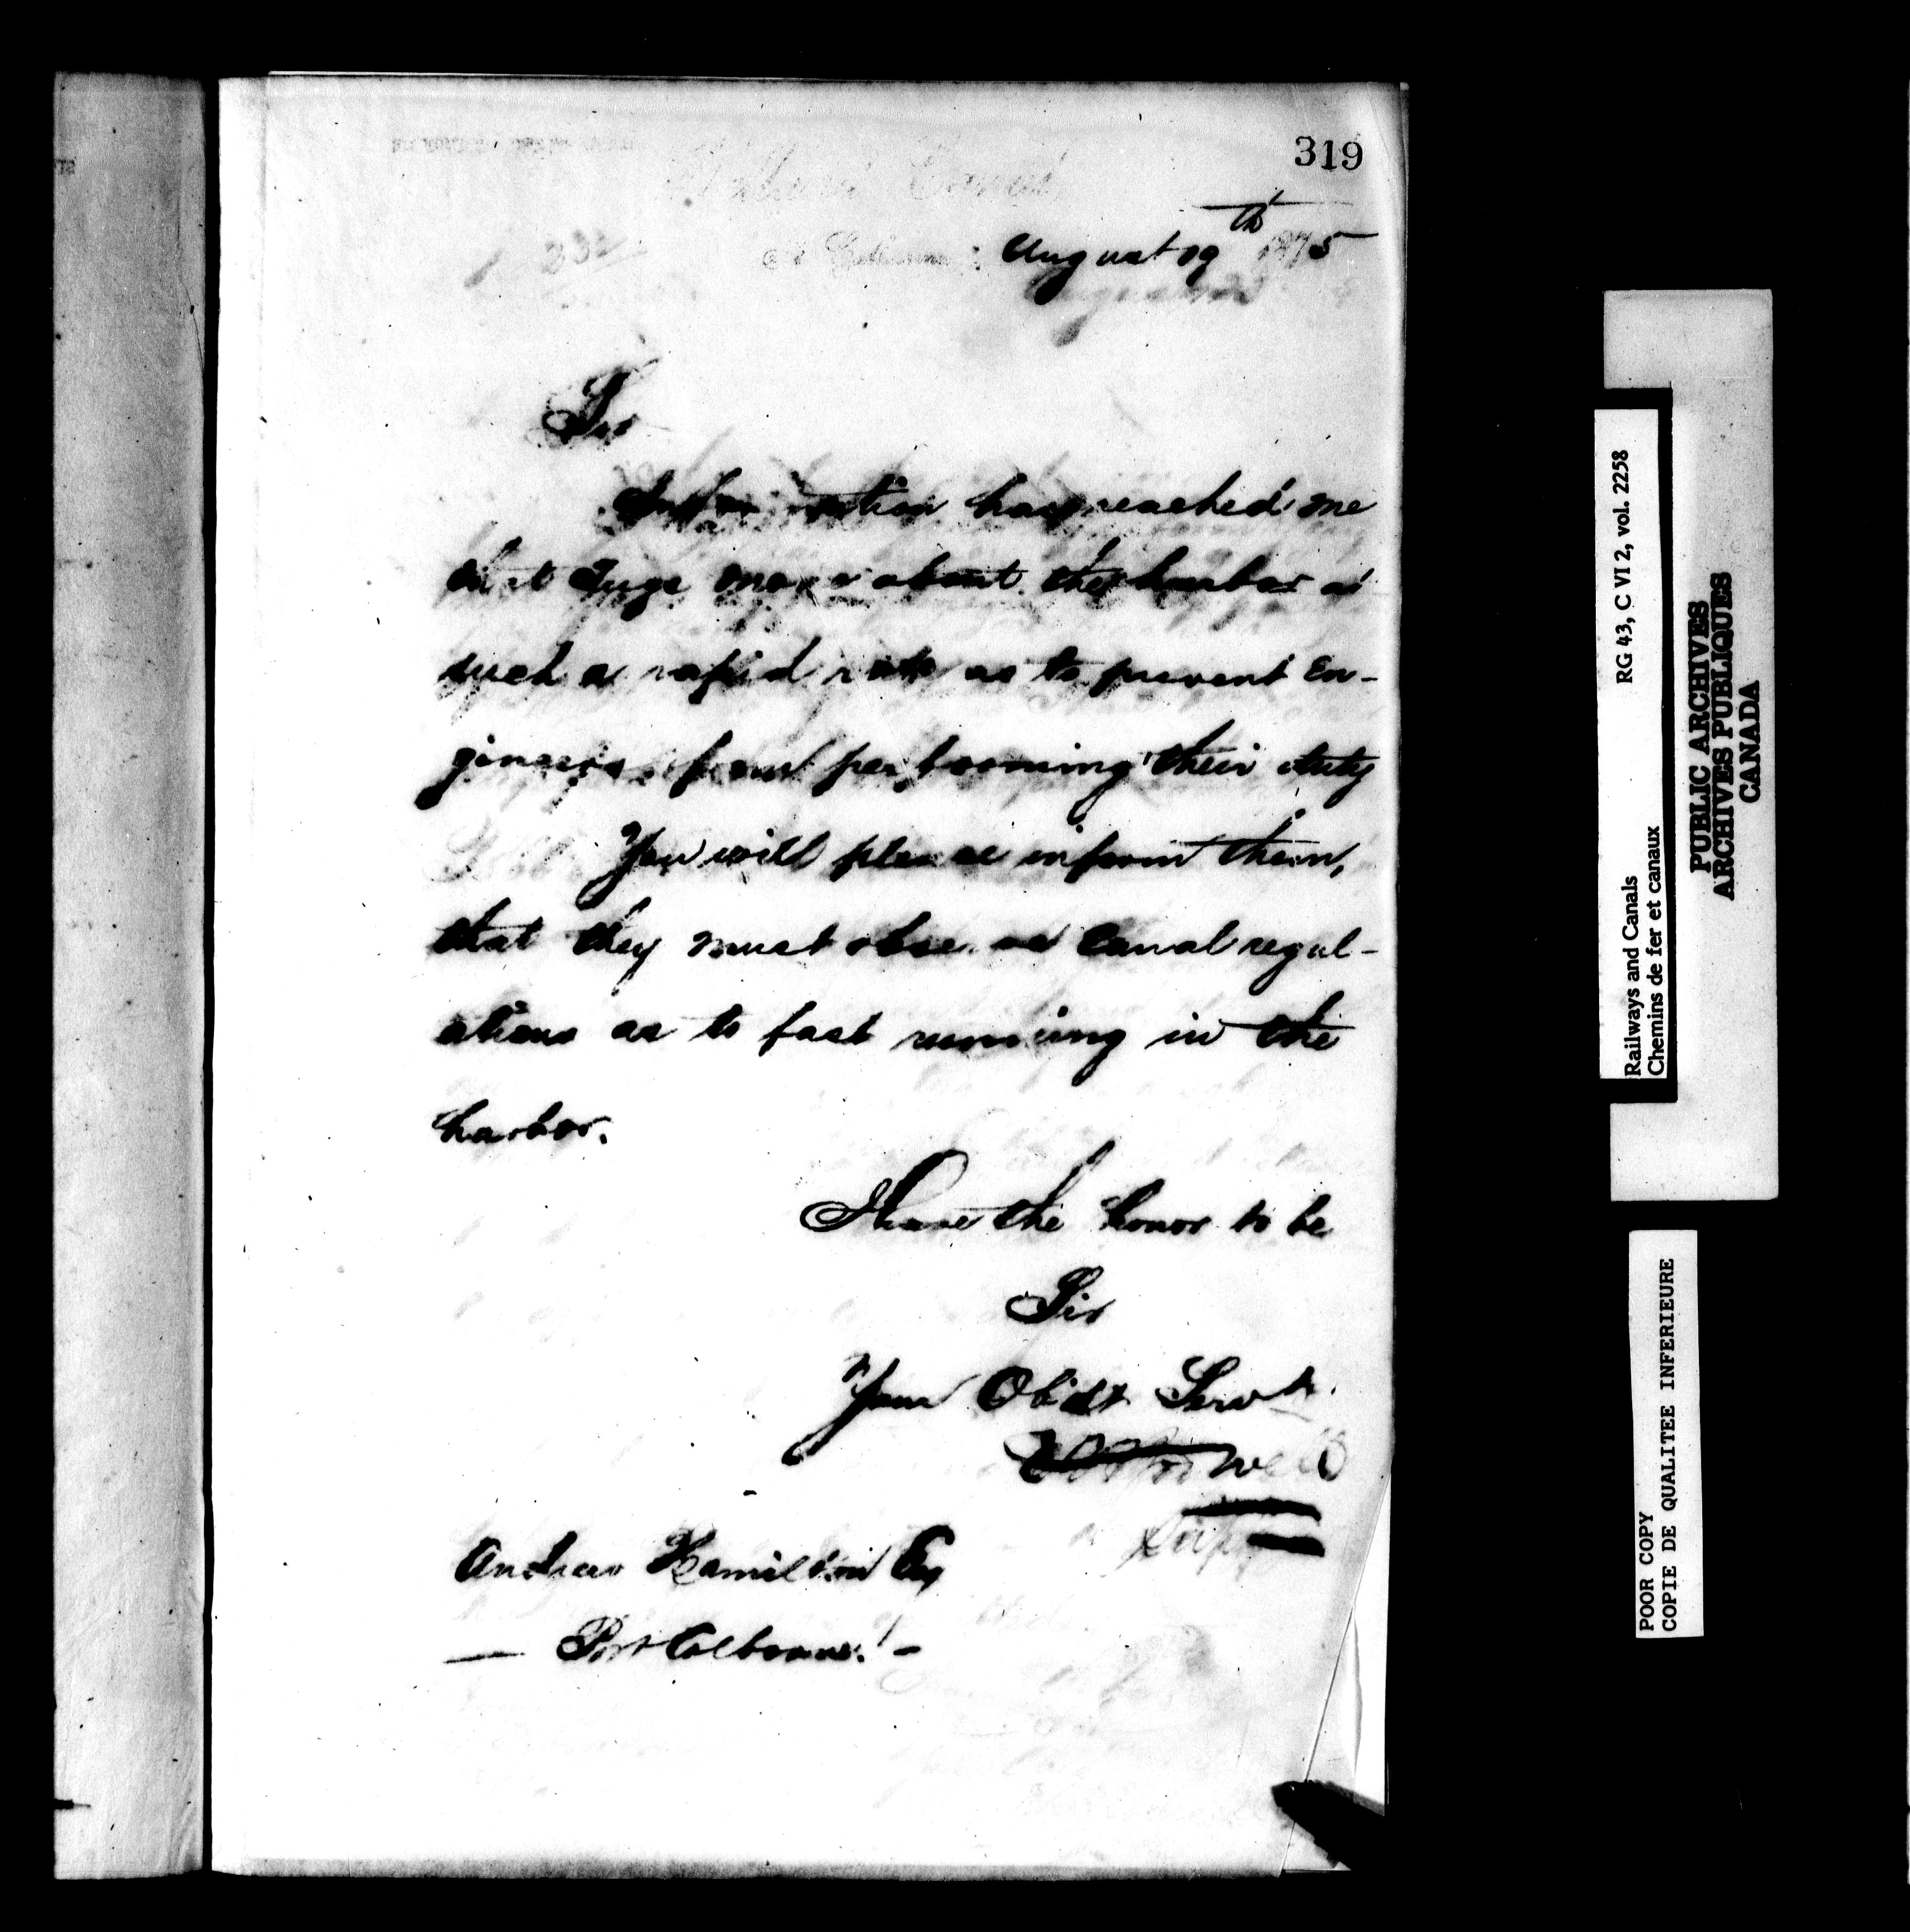 319
Welland Canal
August 19th 1875
Sir
Information has reached me
that Tugs move about the harbor at
such a rapid rate as to prevent En-
gineers from performing their duty
You will please inform them,
that they must observe Canal regul-
ations as to fast running in the
harbor.
I have the honor to be
Sir
Your Obdt Servt.
Supt
Andrew Hamilton Esq
— Port Colborne. —
Railways and Canals RG 43, C VI 2, vol. 2258
Chemins de fer et canaux
PUBLIC ARCHIVES
ARCHIVES PUBLIQUES
CANADA
POOR COPY
COPIE DE QUALITEE INFERIEURE